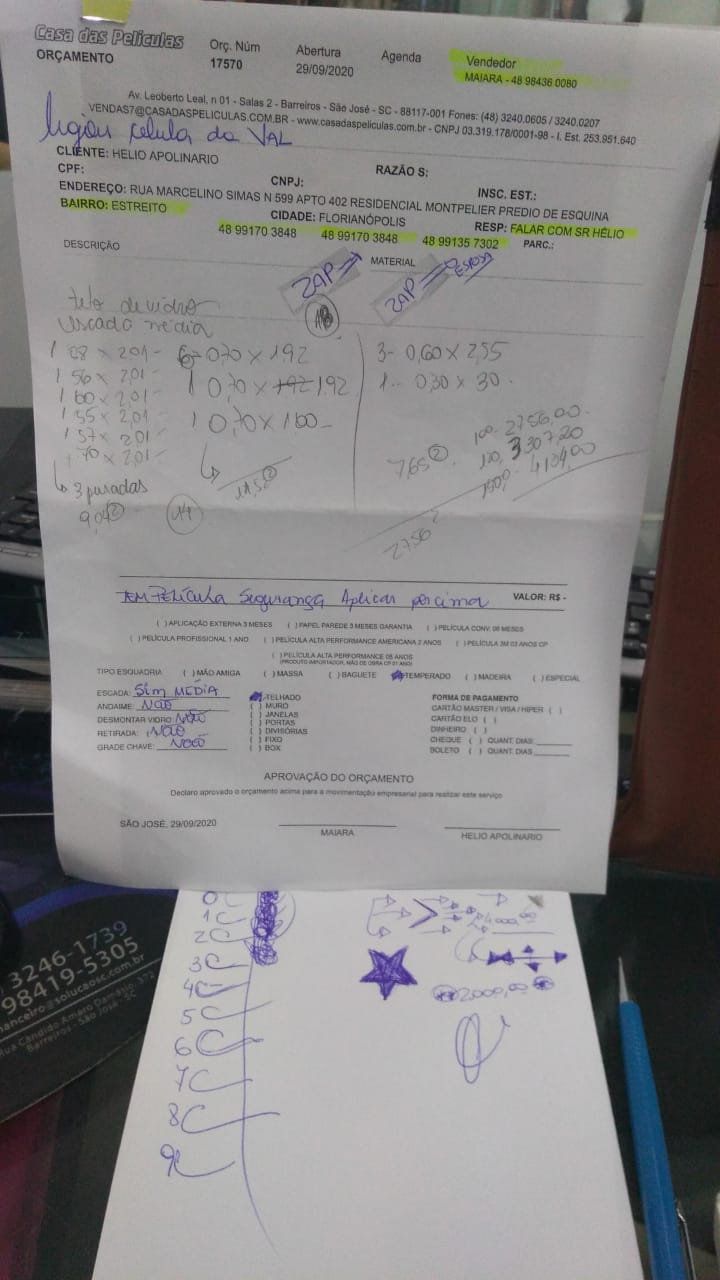 Casa das Películas
ORÇAMENTO
Orç. Núm
17570
Abertura
29/09/2020
Agenda
Vendedor
MAIARA - 48 98436 0080
Av. Leoberto Leal, n 01 - Salas 2 - Barreiros - São José - SC - 88117-001 Fones: (48) 3240.0605 / 3240.0207
VENDAS7@CASADASPELICULAS.COM.BR - www.casadaspeliculas.com.br - CNPJ 03.319.178/0001-98 - I. Est. 253.951.640
ligou celula da VAL
CLIENTE: HELIO APOLINARIO
CPF: CNPJ: RAZÃO S: INSC. EST.:
ENDEREÇO: RUA MARCELINO SIMAS N 599 APTO 402 RESIDENCIAL MONTPELIER PREDIO DE ESQUINA
BAIRRO: ESTREITO CIDADE: FLORIANÓPOLIS RESP: FALAR COM SR HÉLIO
48 99170 3848 48 99170 3848 48 99135 7302 PARC.:
DESCRIÇÃO MATERIAL
ZAP ZAP ESPOSA
teto de vidro
escada média
18
1 58 x 2,01 - 6 - 0,70 x 192 3- 0,60 x 2,55
1 56 x 2,01 - 1 0,70 x 192 1,92 1- 0,30 x 30
1 60 x 2,01 - 1 0,70 x 1,60
1 55 x 2,01
1 57 x 2,01 -
1 70 x 2,01 -
100- 2756,00
120, 3307,20
1500- 4134,00
7,65²
11,5²
3 puxadas
9,04²
14
27,56²
TEM PELÍCULA Segurança Aplicar por cima VALOR: R$ -
( ) APLICAÇÃO EXTERNA 3 MESES ( ) PAPEL PAREDE 3 MESES GARANTIA ( ) PELÍCULA CONV. 06 MESES
( ) PELÍCULA PROFISSIONAL 1 ANO ( ) PELÍCULA ALTA PERFORMANCE AMERICANA 2 ANOS ( ) PELÍCULA 3M 03 ANOS CP
( ) PELÍCULA ALTA PERFORMANCE 05 ANOS
(PRODUTO IMPORTADOR, MÃO DE OBRA CP 01 ANO)
TIPO ESQUADRIA ( ) MÃO AMIGA ( ) MASSA ( ) BAGUETE TEMPERADO ( ) MADEIRA ( ) ESPECIAL
ESCADA: Sim MEDIA
ANDAIME: NÃO
DESMONTAR VIDRO NÃO
RETIRADA: NÃO
GRADE CHAVE: NÃO
TELHADO
( ) MURO
( ) JANELAS
( ) PORTAS
( ) DIVISÓRIAS
( ) FIXO
( ) BOX
FORMA DE PAGAMENTO
CARTÃO MASTER / VISA / HIPER ( )
CARTÃO ELO ( )
DINHEIRO ( )
CHEQUE ( ) QUANT. DIAS:
BOLETO ( ) QUANT. DIAS
APROVAÇÃO DO ORÇAMENTO
Declaro aprovado o orçamento acima para a movimentação empresarial para realizar este serviço
SÃO JOSÉ, 29/09/2020
MAIARA
HELIO APOLINARIO
0C
1C
2C
3C
4C
5C
6C
7C
8C
9C
4000,00
2000,00
3246-1739
98419-5305
nanceiro@solucaosc.com.br
Rua Candido Amaro Damásio, 372
Barreiros - São José - SC